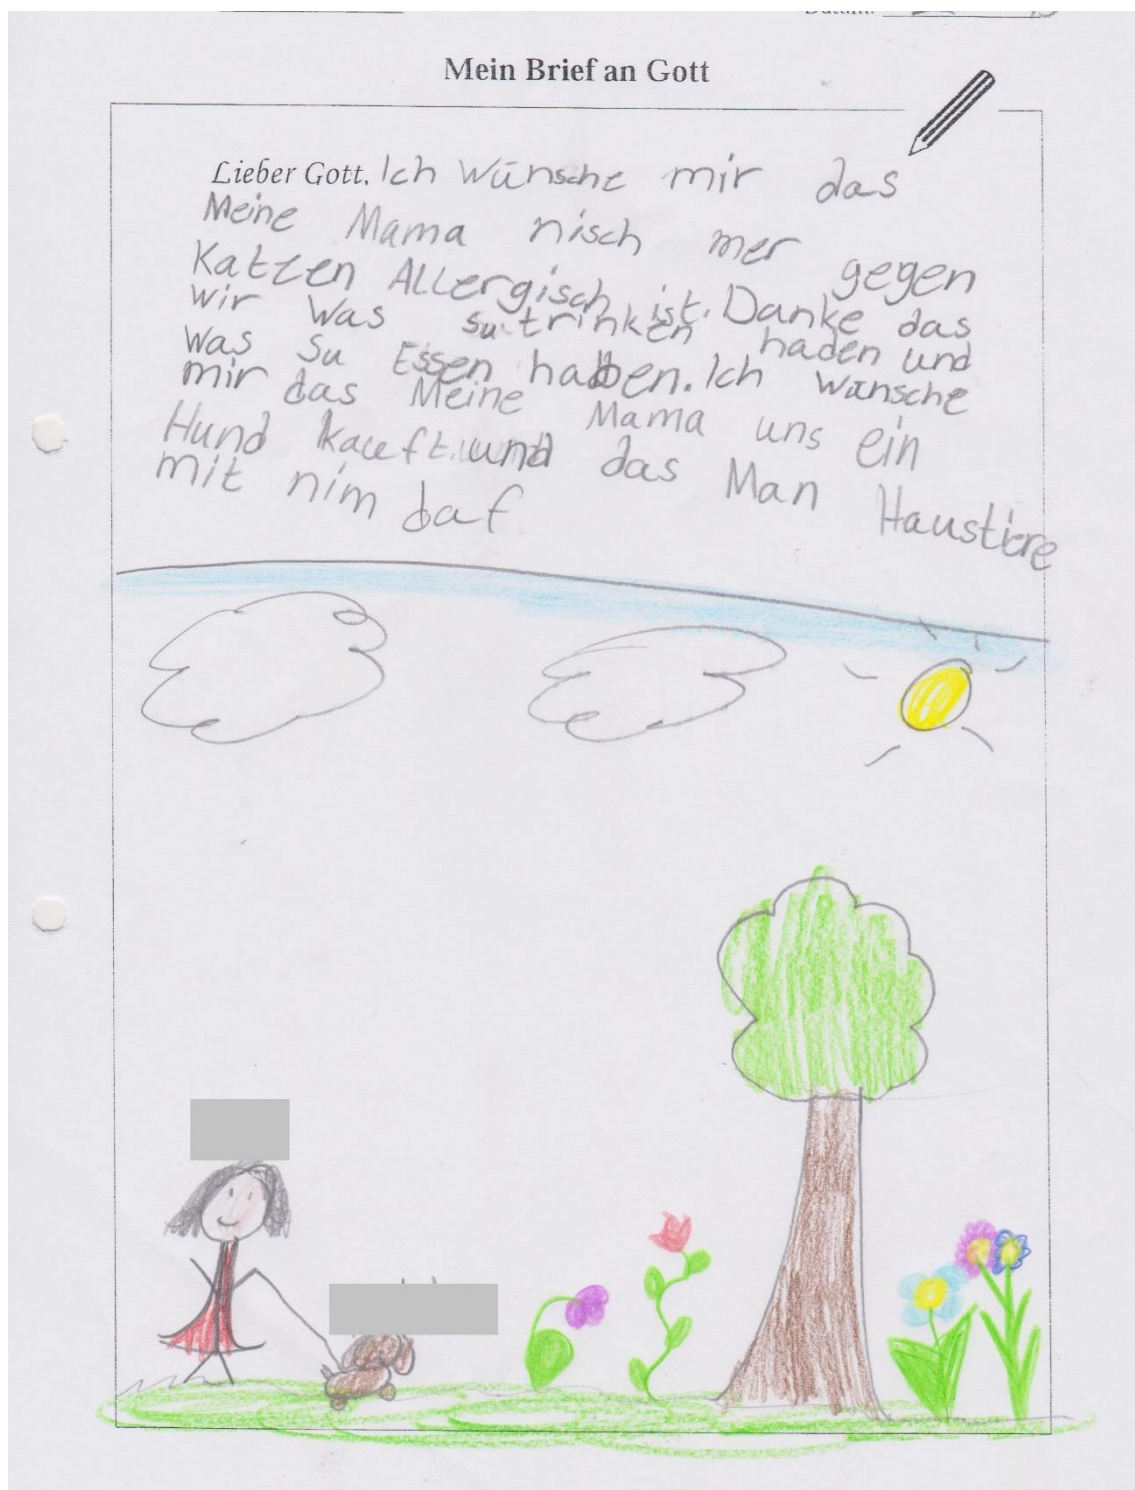 Mein Brief an Gott
Lieber Gott, Ich Wünsche mir das
Meine Mama nisch mer gegen
Katzen ALLergisch ist. Danke das
wir Was su trinken haden und
was su Essen habben. Ich wünsche
mir das Meine Mama uns ein
Hund kauft. und das Man Haustiere
mit nim daf